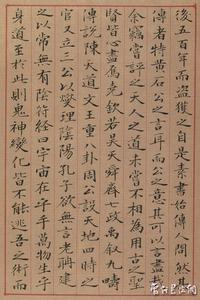 後五百年而盜獲之自是素書始傳人間然
傳者特黃石公之言耳而公之意其可以言盡哉
余竊嘗評之天人之道未嘗不相為用古之聖
賢皆心盡焉堯欽若昊天舜齊七政禹叙九疇
傳說陳天道文王重八卦周公設天地四時之
官又立三公以燮理陰陽孔子欲無言老聃建
之以常無有陰符經曰宇宙在乎手萬物生乎
身道至於此則鬼神變化皆不能逃吾之術而